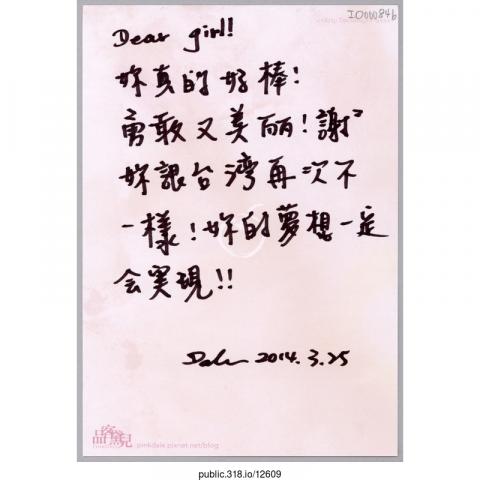 IO000846
Dear girl!!
妳真的好棒!
勇敢又美丽!謝²
妳讓台湾再次不
一樣!妳的夢想一定
会実現!!
2014.3.25
品客黛兒
pinkdale.pixnet.net/blog
public.318.io/12609